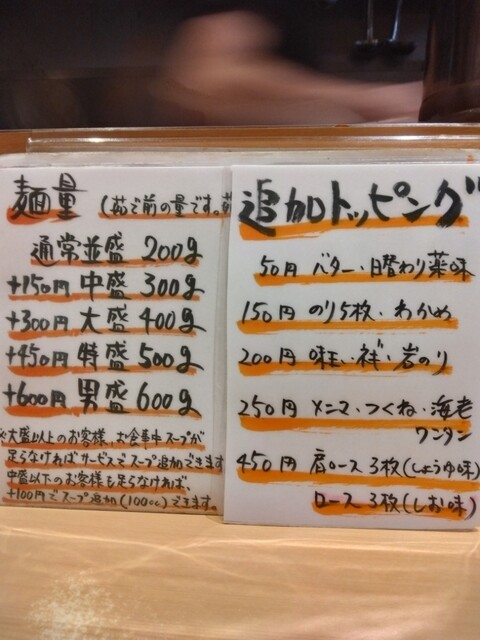 麺量 (茹で前の量です。
通常並盛 200g
+150円 中盛 300g
+300円 大盛 400g
+450円 特盛 500g
+600円 男盛 600g
※大盛以上のお客様、お食事中スープが
足らなければサービスでスープ追加できます
中盛以下のお客様も足らなければ、
+100円でスープ追加(100cc)できます。
追加トッピング
50円 バター・日替わり薬味
150円 のり5枚・わかめ
200円 味玉・ネギ・岩のり
250円 メンマ・つくね・海老
ワンタン
450円 肩ロース3枚(しょうゆ味)
ロース3枚(しお味)